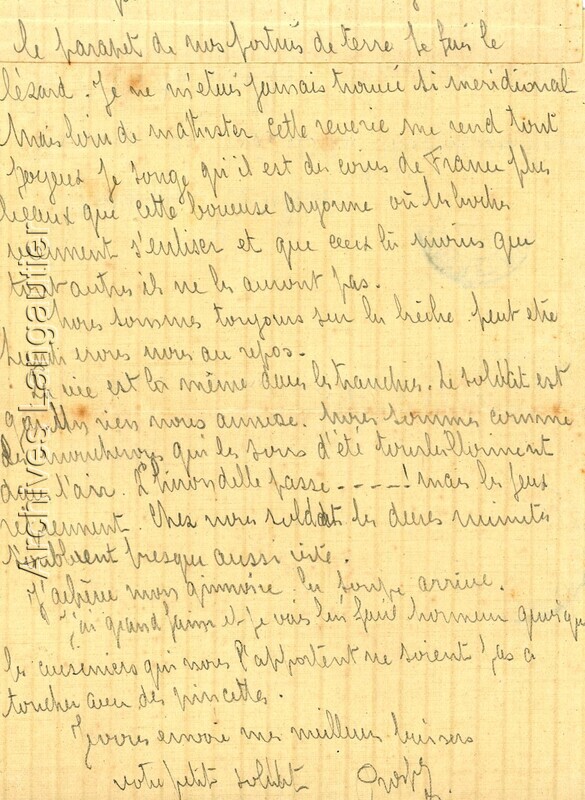 le parapet de nos fortins de terre je fais le
lésard. Je ne m'étais jamais trouvé si meridional
Mais loin de m'attrister cette reverie me rend tout
joyeux je songe qu'il est des coins de France plus
beaux que cette boueuse Argonne où les boches
viennent s'enliser et que ceux là moins que
tout autres ils ne les auront pas.
Nous sommes toujours sur la brèche peut etre
irons nous au repos.
La vie est la même dans les tranchées. Le soldat est
gai un rien nous amuse. Nous sommes comme
des moucherons qui les soirs d'été tourbillonnent
dans l'air. L'hirondelle passe - - - - ! mais les jeux
reviennent. Chez nous soldats les dures minutes
s'oublient presque aussi vite.
J'achève mon la soupe arrive.
J'ai grand faim et je vais lui faire honneur quoique
les cuisiniers qui nous l'apportent ne soient pas à
toucher avec des pincettes.
Je vous envoie mes meilleurs baisers
votre petit soldat
Archives Langautier